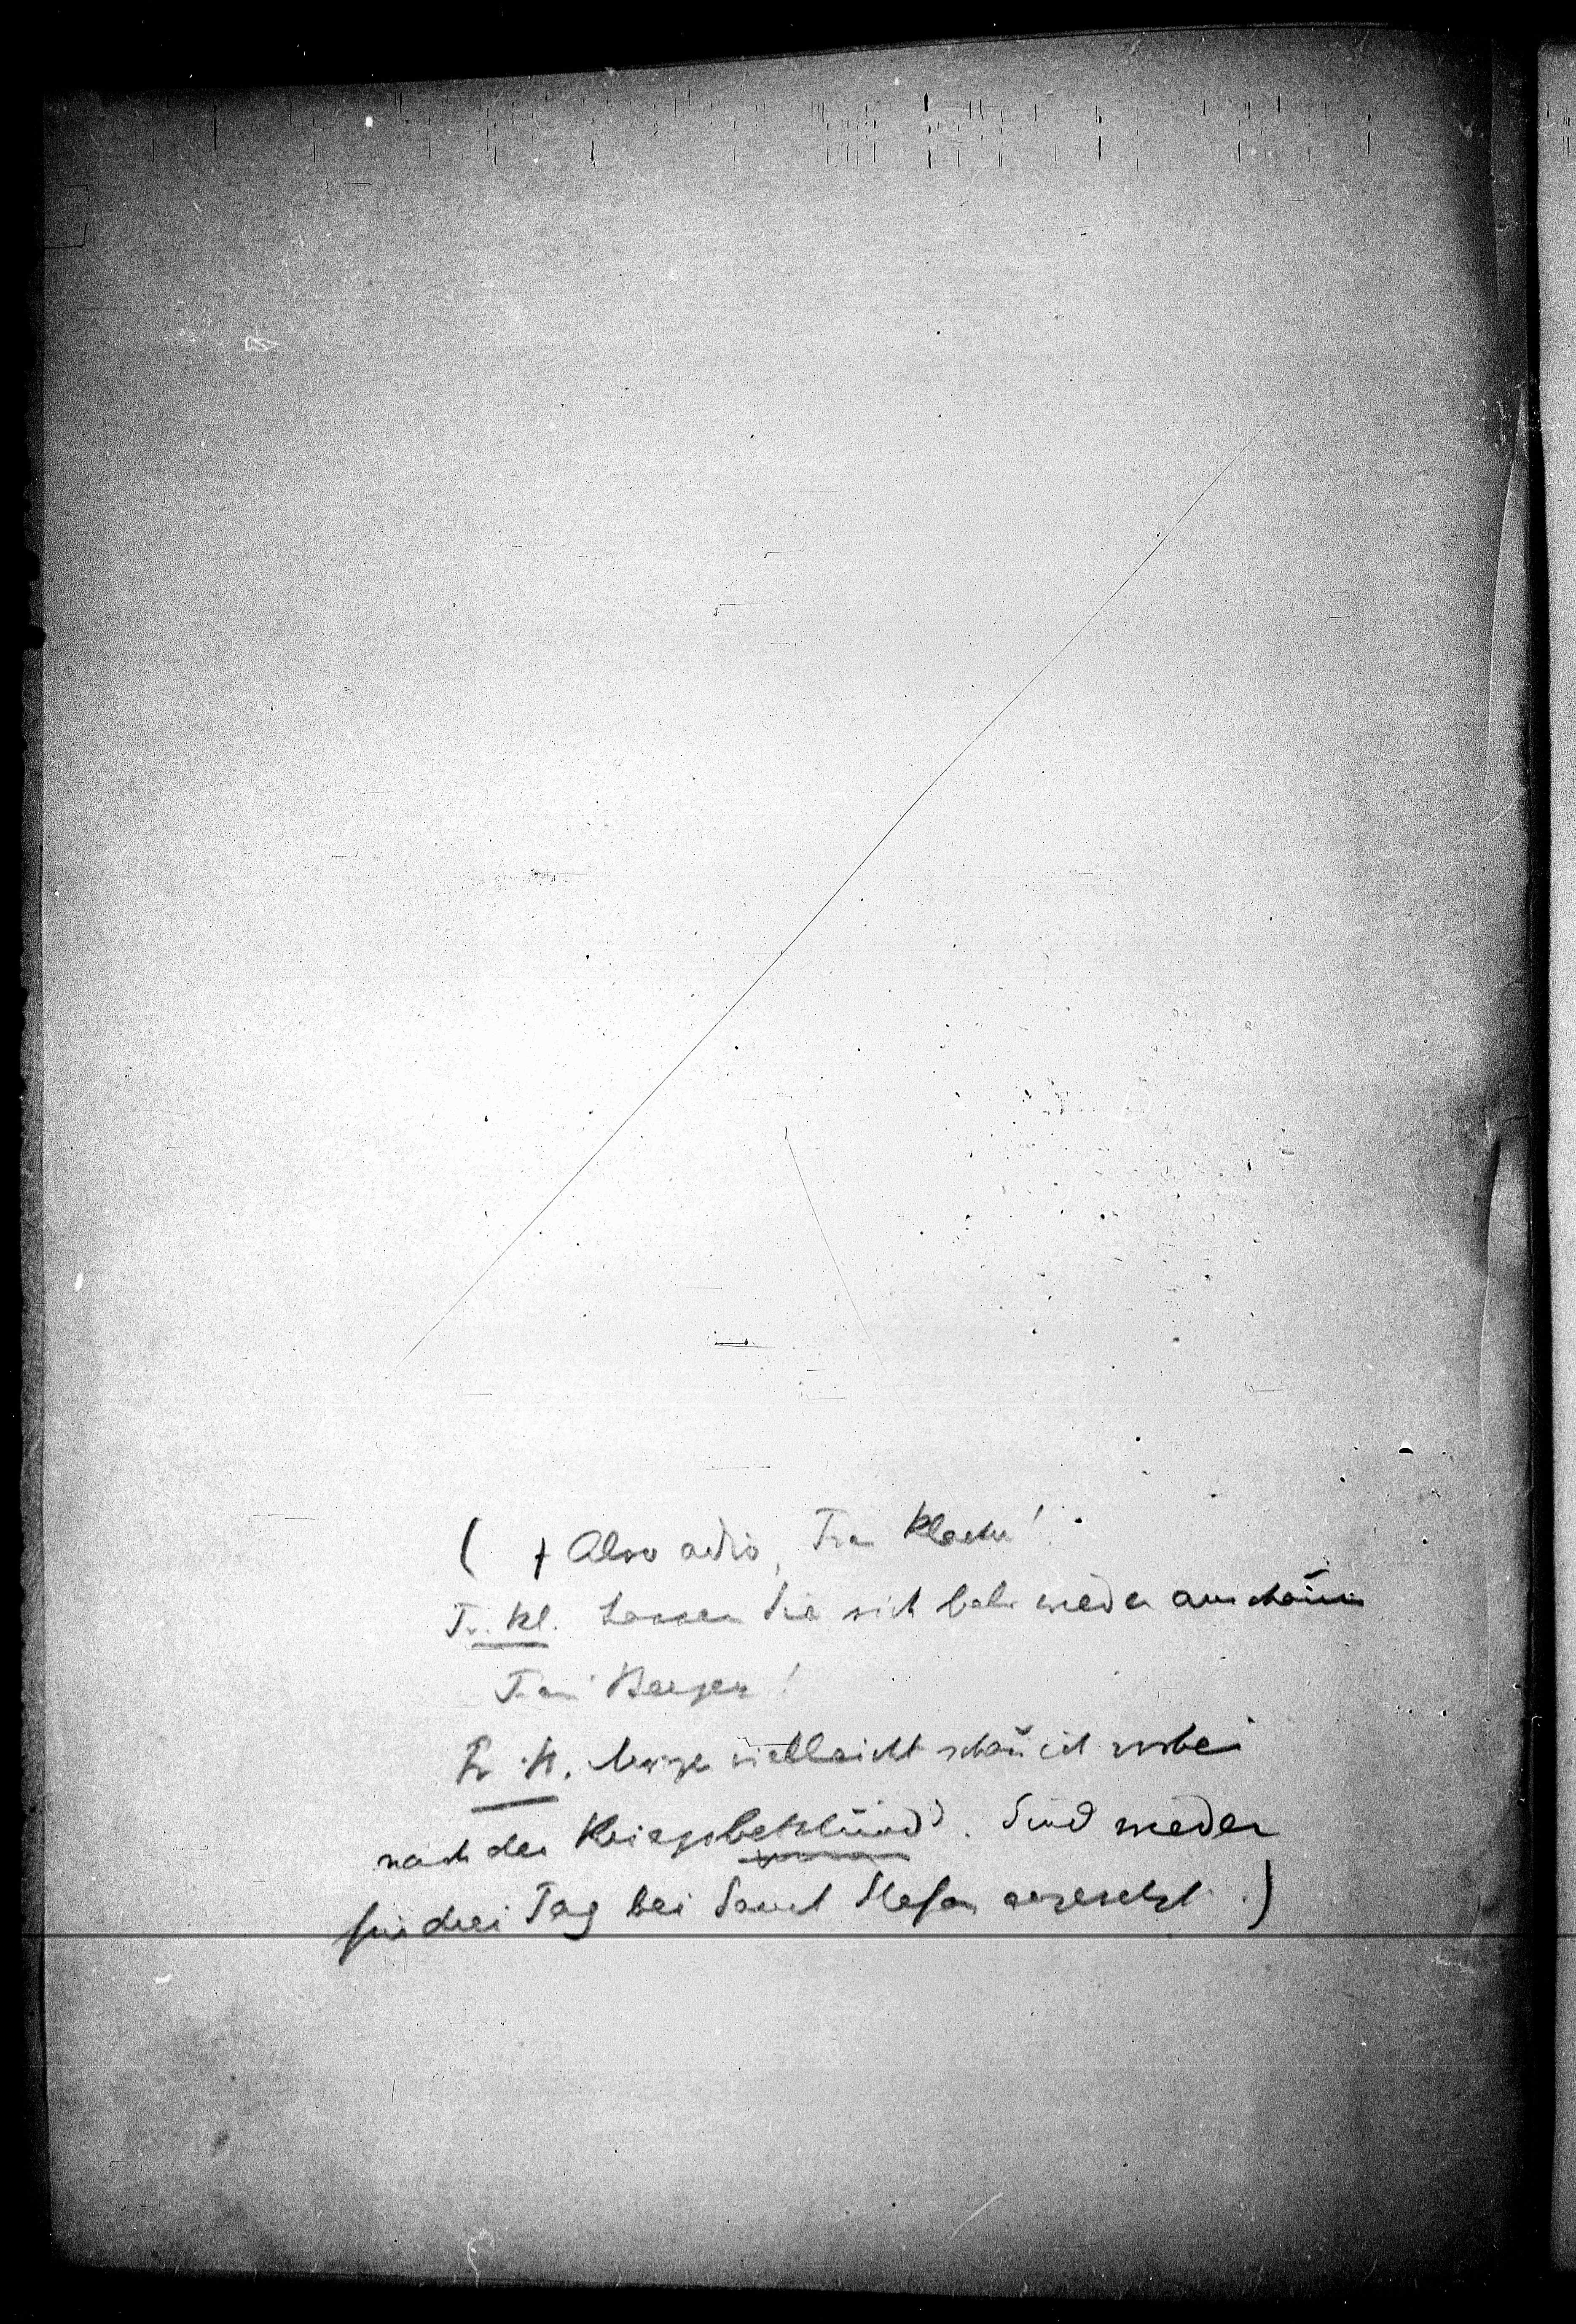 ( + Also adio, Frau Klochn!
Fr. Kl. Lassen Sie sich bald wieder anschaun
Frau Berger!
Fr. B. Morgn vielleicht schau ich vorbei
nach der Kriegsbetstund. Sind wieder
für drei Tag bei Sanct Stefan angesetzt.)